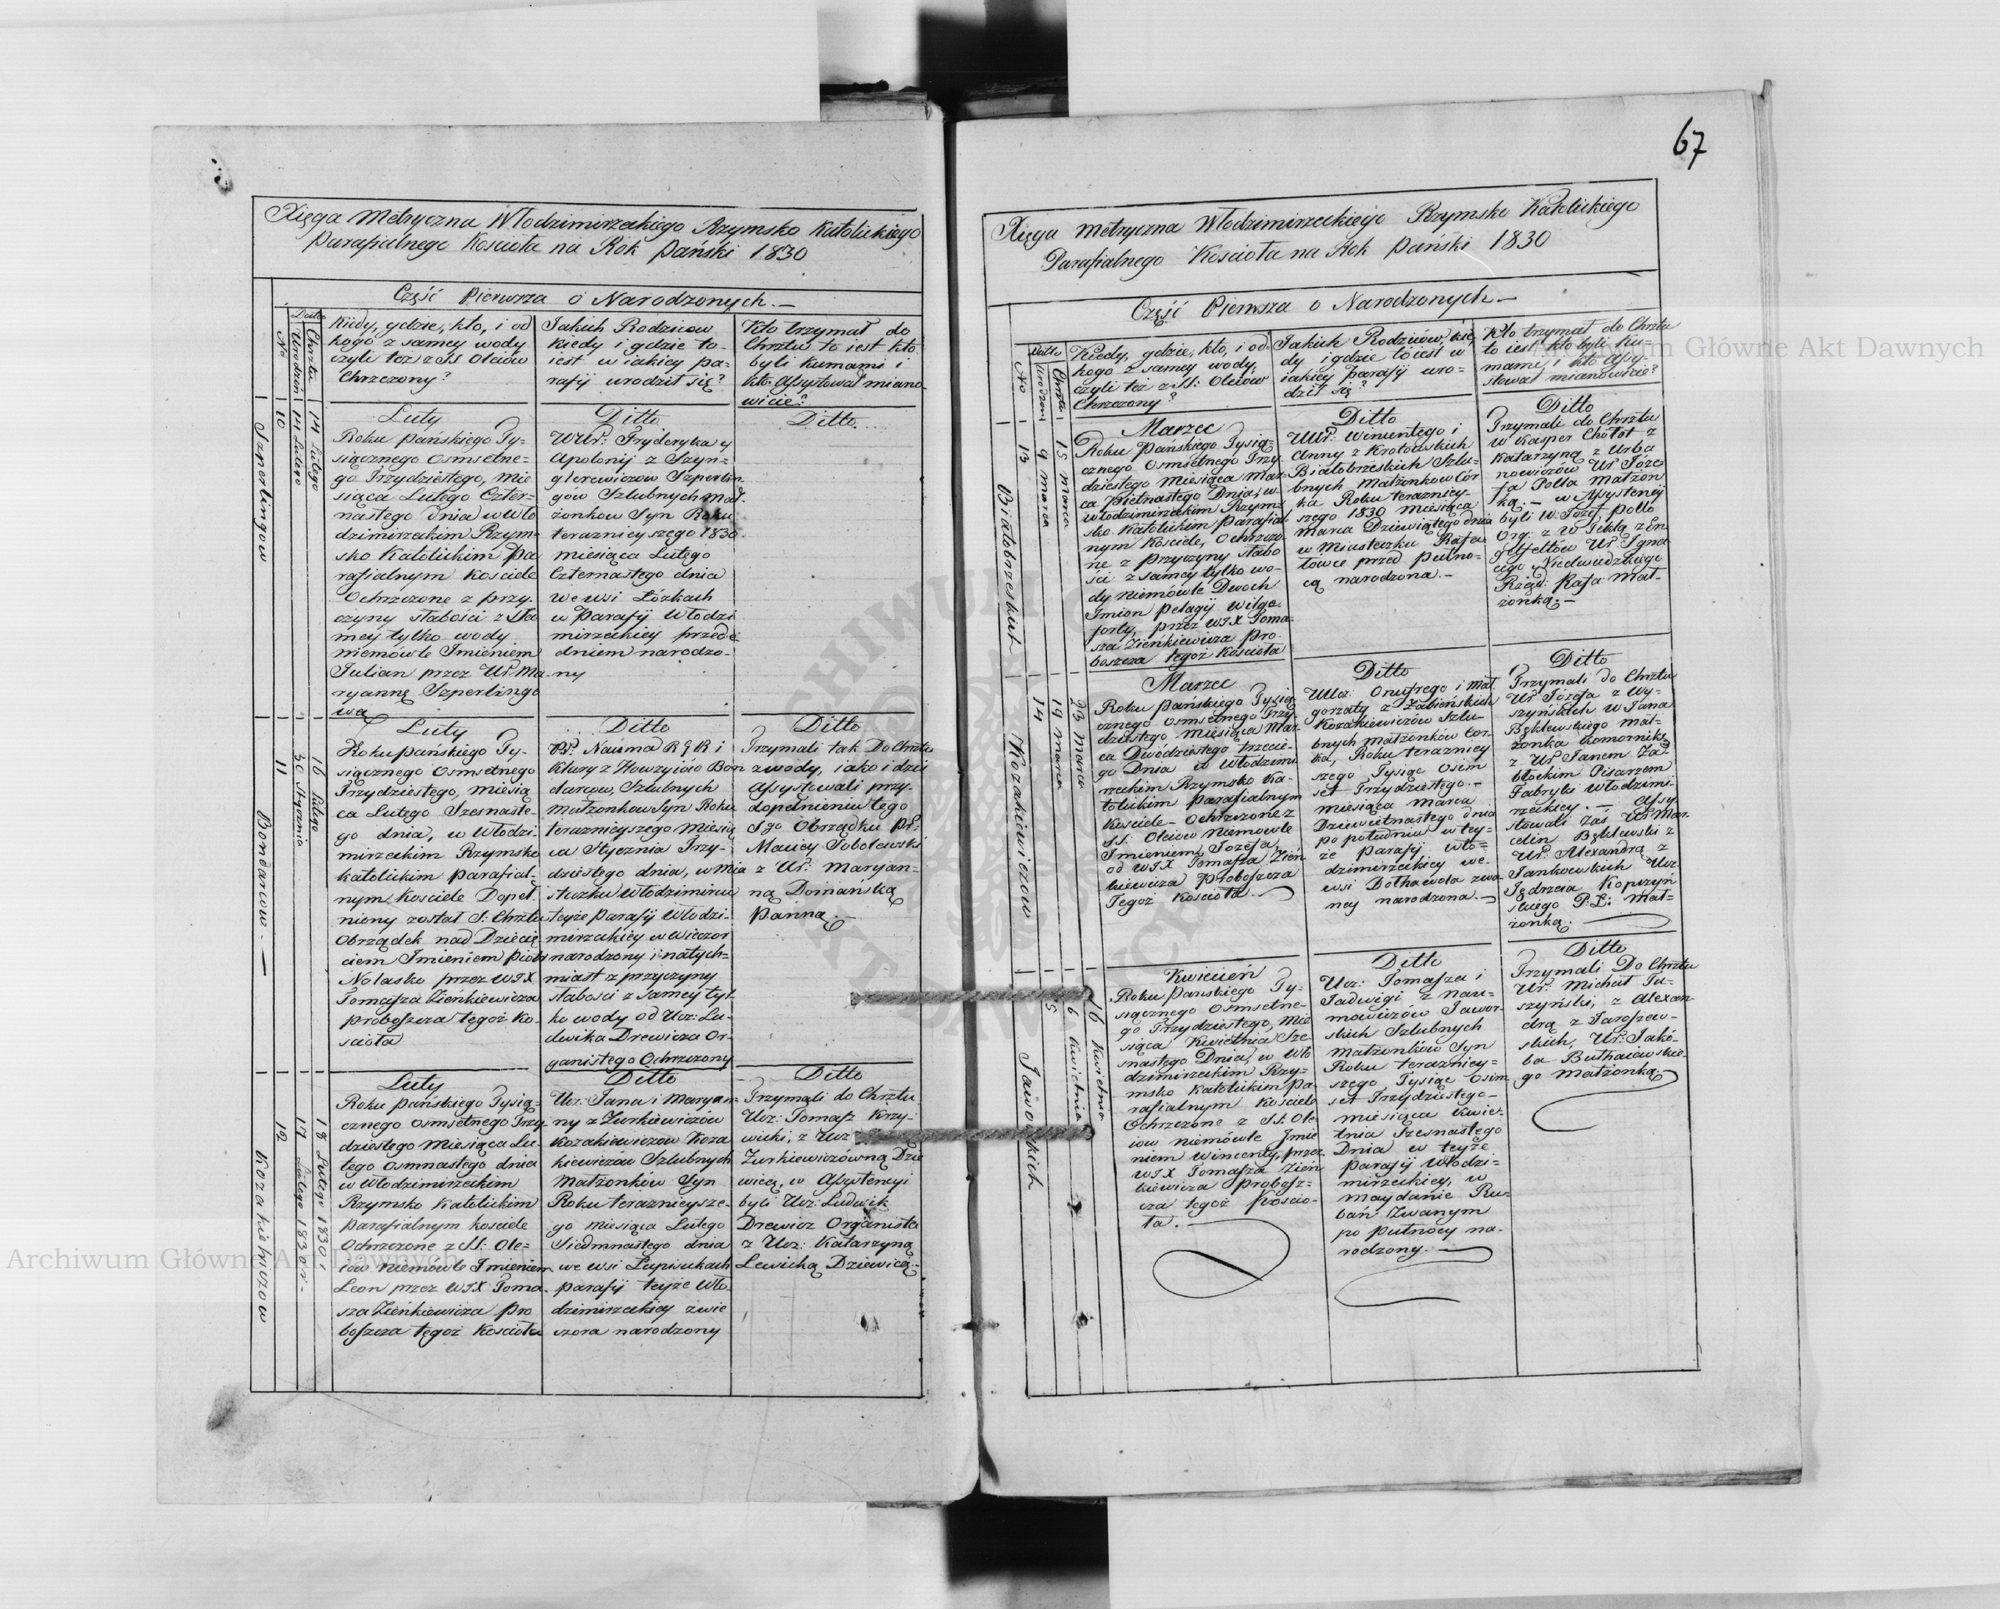 67
Xięga Metryczna Włodzimirzeckiego Rzymsko Katolickiego
Parafialnego Kościoła na Rok Pański 1830
Część Pierwsza o Narodzonych.—
No
Data
Urodzeń
Chrztu
Kiedy, gdzie, kto, i od
kogo z samey wody
czyli też z SS Oleiów
Chrzczony?
Jakich Rodziców
kiedy i gdzie to-
iest w iakiey pa-
rafij urodził się?
Kto trzymał do
Chrztu to iest kto
byli kumami i
kto assystował miano-
wicie?
Szperlingow
10
14 Lutego
14 Lutego
Luty
Roku pańskiego Ty-
siącznego osmsetne-
go Trzydziestego, Mie
siąca Lutego Czter-
nastego dnia w Wło
dzimirzeckim Rzym-
sko Katolickim Pa
rafialnym kościele
Ochrzczone z przy-
czyny słabości z Sa
mey tylko wody
niemówle Imieniem
Julian przez Ur. Ma-
ryannę Szperlingo
wą
Ditto
WUr: Fryderyka y
Apolonij z Szyn-
glerewiczow Szperlin
gów Szlubnych mał.
żonkow Syn Roku
teraznieyszego 1830
miesiąca Lutego
Czternastego dnia
we wsi Lózkach
w Parafij Włodzi
mirzeckiey przede
dniem narodzo-
ny
Ditto
Bondarcow.—
11
30 Stycznia
16 Lutego
Luty
Roku pańskiego Ty-
siącznego Osmsetnego
Trzydziestego, miesią
ca Lutego Szesnaste-
go dnia, w Włodzi-
mirzeckim Rzymsko
katolickim parafial-
nym kościele Dopeł-
niony został S: Chrztu
Obrządek nad Dziecię
ciem Imieniem Piotr
Nolasko przez WJX
Tomasza Zieńkiewicza
proboszcza tegoż ko-
ścioła
Ditto
Nauma R G R i
Klary z Howzyiów Bon
darcow, Szlubnych
Małżonkow Syn Roku
teraznieyszego Miesią
ca Stycznia Trzy-
dziestego dnia, w mia
stuzku Włodzimircu
teyże parafij Włodzi-
mirzeckiey w wieczor
narodzony i natych-
miast z przyczyny
słabości z samey tyl-
ko wody od Ucz: Lu-
dwika Drewicza Or-
ganistego Ochrzczony
Ditto
Trzymali tak Do Chrztu
z wody, iako i dziś
Assystwali przy-
dopełnieniu tego
Sgo Obrządku Pr:
Maucy Sobolewski
z Ur: Maryan-
ną Domańską
Panną.—
Kozakiewiczow
12
17 Lutego 1830 r.
18 Lutego 1830
Luty
Roku pańskiego Tysią-
cznego osmsetnego Trzy-
dziestego Miesiąca Lu-
tego osmnastego dnia
w Włodzimirzeckim
Rzymsko Katolickim
parafialnym kościele
Ochrzczone z SS: Ole-
iów niemówle Imieniem
Leon przez WJX Toma-
sza Zieńkiewicza pro
boszcza tęgoż Kościoła
Ditto
Ucz: Jana i Maryan-
ny z Zurkiewiczów
Kozakiewiczow Koza
kiewiczów Szlubnych
Małżonków Syn
Roku teraznieysze-
go miesiąca Lutego
Siedmnastego dnia
we wsi Łupiukach
parafij teyże Wło-
dzimirzeckiey z wie
czora narodzony
Ditto
Trzymali do Chrztu
Ucz: Tomasz Krzy-
wicki, z Ucz
Zurkiewiczówną Dzie
wicą, w Assystencyi
byli Ucz: Ludwik
Drewicz Organista
z Ucz: Katarzyną
Lewicką Dziewicą.—
Xięga Metryczna Włodzimirzeckiego Rzymsko Katolickiego
Parafialnego Kościoła na Rok Pański 1830
Część Pierwsza o Narodzonych.—
No
Data
Urodzeni
Chrztu
Kiedy, gdzie, kto, i od-
kogo z samey wody,
czyli też z SS: Oleiów
Chrzczony?
Jakich Rodziców, kie-
dy i gdzie to iest w
iakiey parafij uro-
dził się?
Kto trzymał do Chrztu
to iest kto byli ku-
mami, i kto Assy-
stował mianowicie?
Białobrzeskich
13
9 Marca
15 Marca
Marzec
Roku Pańskiego Tysią-
cznego Osmsetnego Trzy-
dziestego miesiąca Mar-
ca piętnastego Dnia, w
Włodzimirzeckim Rzym-
sko Katolickim parafial
nym Kościele, Ochrzczo
ne z przyczyny słabo
ści z samey tylko wo-
dy Niemówle Dwoch
Imion Pelagij Wilga-
forty, przez WJX Toma-
sza Zieńkiewicza Pro-
boszcza tegoż Kościoła
Ditto
Uur: Wincentego i
Anny z Krolowskich
Białobrzeskich Szlu-
bnych Małżonkow Cór
ka Roku teraznicy-
szego 1830 Miesiąca
Marca Dziewiątego dnia
w Miasteczku Rafa
łówce przed Pułno-
cą narodzona.—
Ditto
Trzymali do Chrztu
W Kasper Chołot z
Katarzyną z Urba
nowiczów Ur Józe-
fa Polla Małżon
ką.— w Assystencij
byli W. Józef Pollo
Org: z W Teklą z En
gelfeltów Ur Igna-
cego Niedwiedzkiego
Rząd: Rafa: Mał-
żonką.—
Kozakiewiczow
14
19 Marca
23 Marca
Marzec
Roku pańskiego Tysią
cznego osmsetnego Trzy-
dziestego, miesiąca Mar
ca Dwódziestego trzecie-
go Dnia w Włodzimi
rzeckim Rzymsko Ka-
tolickim parafialnym
Kościele Ochrzczone z
SS. Oleiow Niemówle
Imieniem Józefa,
od WJX Tomasza Zień
kiewicza Proboszcza
Tegoż Kościoła.
Ditto
Ucz: Onufrego i Mał-
gorzaty z Żabieńskich
Kozakiewiczów Szlu-
bnych małżonków Cor-
ka, Roku teraznicy
szego Tysiąc Osim
set Trzydziestego—
miesiąca Marca
Dziewietnastego dnia
po południu w tey-
że parafij Wło-
dzimirzeckiey we
wsi Dołhawola zwa
ney narodzona.—
Ditto
Trzymali do Chrztu
Ur Józefa z Wy-
szyńskich W Jana
Bęklewskiego Mał-
żonka Komornika
z Ur Janem Za
błockim Pisarzem
Fabryki Włodzimi-
rzeckiey.— Assy
stowali zaś Ur Mar
celin Bęklewski z
Ur: Alexandrą z
Jankowskich Ucz:
Jędrzeia Kopczyń
skiego P.L. Mał-
żonką.
Jaworskich
15
6 Kwietnia
16 Kwietnia
Kwiecień
Roku Pańskiego Ty-
siącznego Osmsetne-
go Trzydziestego, Mie
siąca Kwietnia Sze-
snastego Dnia, w Wło
dzimirzeckim Rzy-
msko Katolickim pa-
rafialnym Kościele
Ochrzczone z SS: Ole
iow niemówle Imie
niem Wincenty, przez
WJX Tomasza Zień
kiewicza Probosz-
cza tegoż Kościo-
ła.—
Ditto
Ucz: Tomasza i
Jadwigi z Nau-
mowiczów Jawor-
skich Szlubnych
Małżonków Syn
Roku teraznicy-
szego Tysiąc Osim
set Trzydziestego—
miesiąca Kwie-
tnia Szesnastego
Dnia w teyże
parafij Włodzi-
mirzeckiey, w
Maydanie Ru-
bań Zwanym
po pułnocy na-
rodzony.—
Ditto
Trzymali Do Chrztu
Ur: Michał Tu-
szyński, z Alexan
drą z Jaroszew-
skich, Ur: Jakó-
ba Buthaiowskie-
go małżonką.
Archiwum Główne Akt Dawnych
Archiwum Główne Akt Dawnych